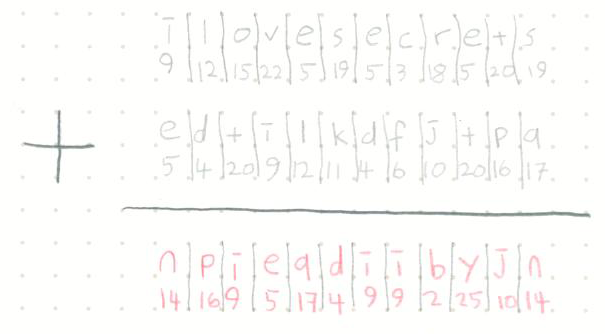 i l o v e s e c r e t s
9 12 15 22 5 19 5 3 18 5 20 19
e d t i l k d f j t p q
+
5 4 20 9 12 11 4 6 10 20 16 17
n p i e q d i i b y j n
14 16 9 5 17 4 9 9 2 25 10 14